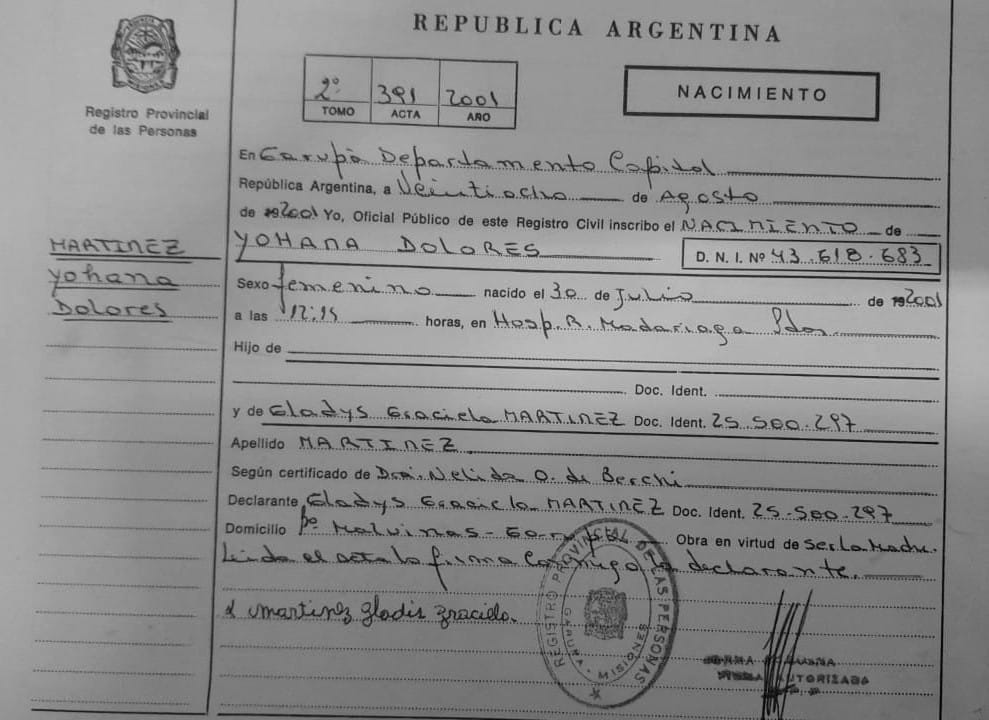 REPUBLICA ARGENTINA
Registro Provincial
de las Personas
2º 391 2001
TOMO ACTA AÑO
NACIMIENTO
MARTINEZ
Yohana
Dolores
En Garupá Departamento Capital
República Argentina, a Veintiocho de Agosto
de 2001 Yo, Oficial Público de este Registro Civil inscribo el NACIMIENTO de
YOHANA DOLORES D. N. I. Nº 43.618.683
Sexo femenino nacido el 30 de Julio de 2001
a las 12:15 horas, en Hosp. R. Madariaga Pdas.
Hijo de
Doc. Ident.
y de Gladys Graciela MARTINEZ Doc. Ident. 25.500.297
Apellido MARTINEZ
Según certificado de Dra. Nelida O. de Berchi
Declarante Gladys Graciela MARTINEZ Doc. Ident. 25.500.297
Domicilio Bº Malvinas - Obra en virtud de Ser la Madre.
Leida el acta la firma Conmigo la declarante.
martinez gladis graciela.
REGISTRO PROVINCIAL DE LAS PERSONAS
GARUPA - MISIONES
AUTORIZADA